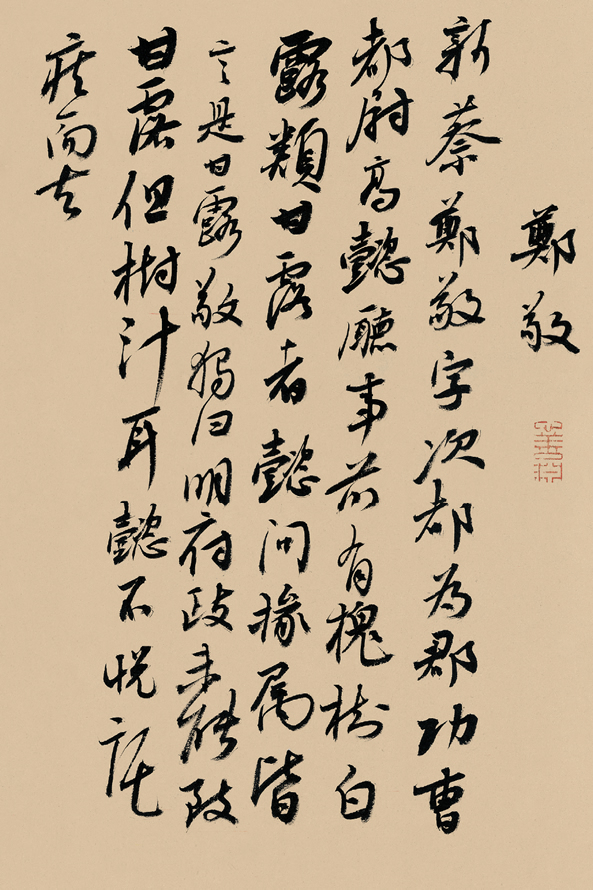 鄭敬
新蔡鄭敬字次都為郡功曹
都尉高懿廳事前有槐樹白
露類甘露者懿問掾屬皆
言是甘露敬獨曰明府政未能致
甘露但樹汁耳懿不悅託
疾而去